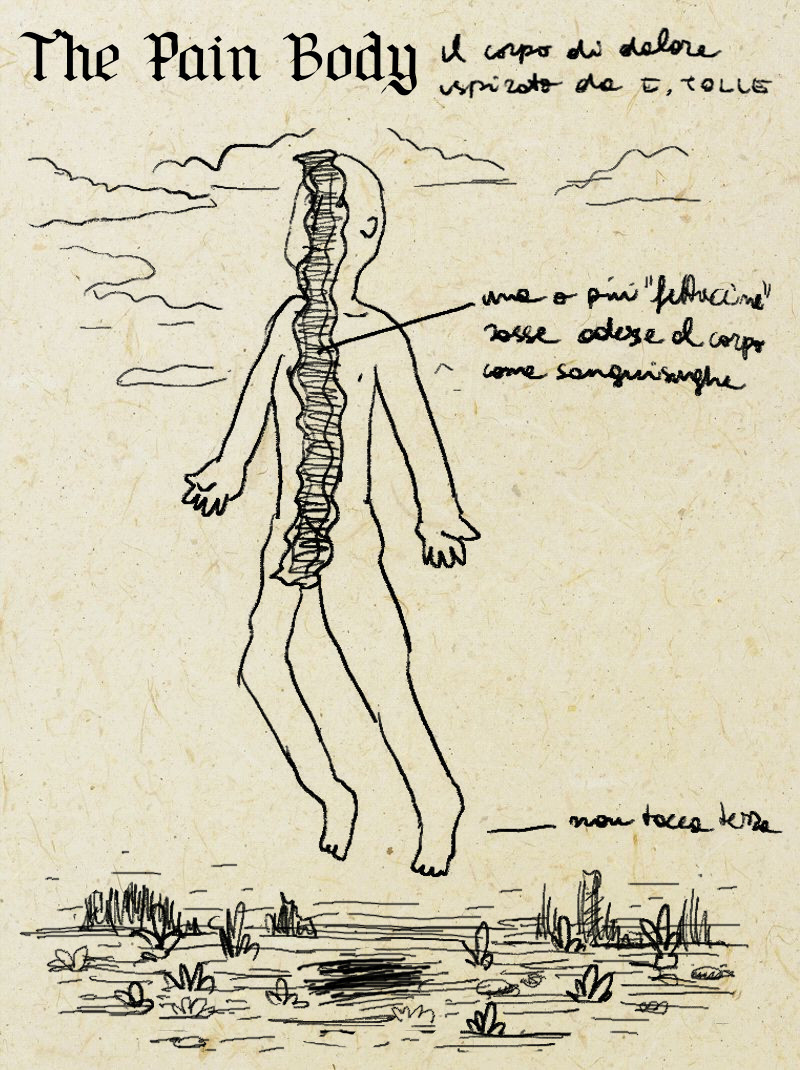 The Pain Body
il corpo di dolore
ispirato da E. TOLLE
una o più "fettuccine"
rosse aderse al corpo
come sanguisughe
non tocca terra